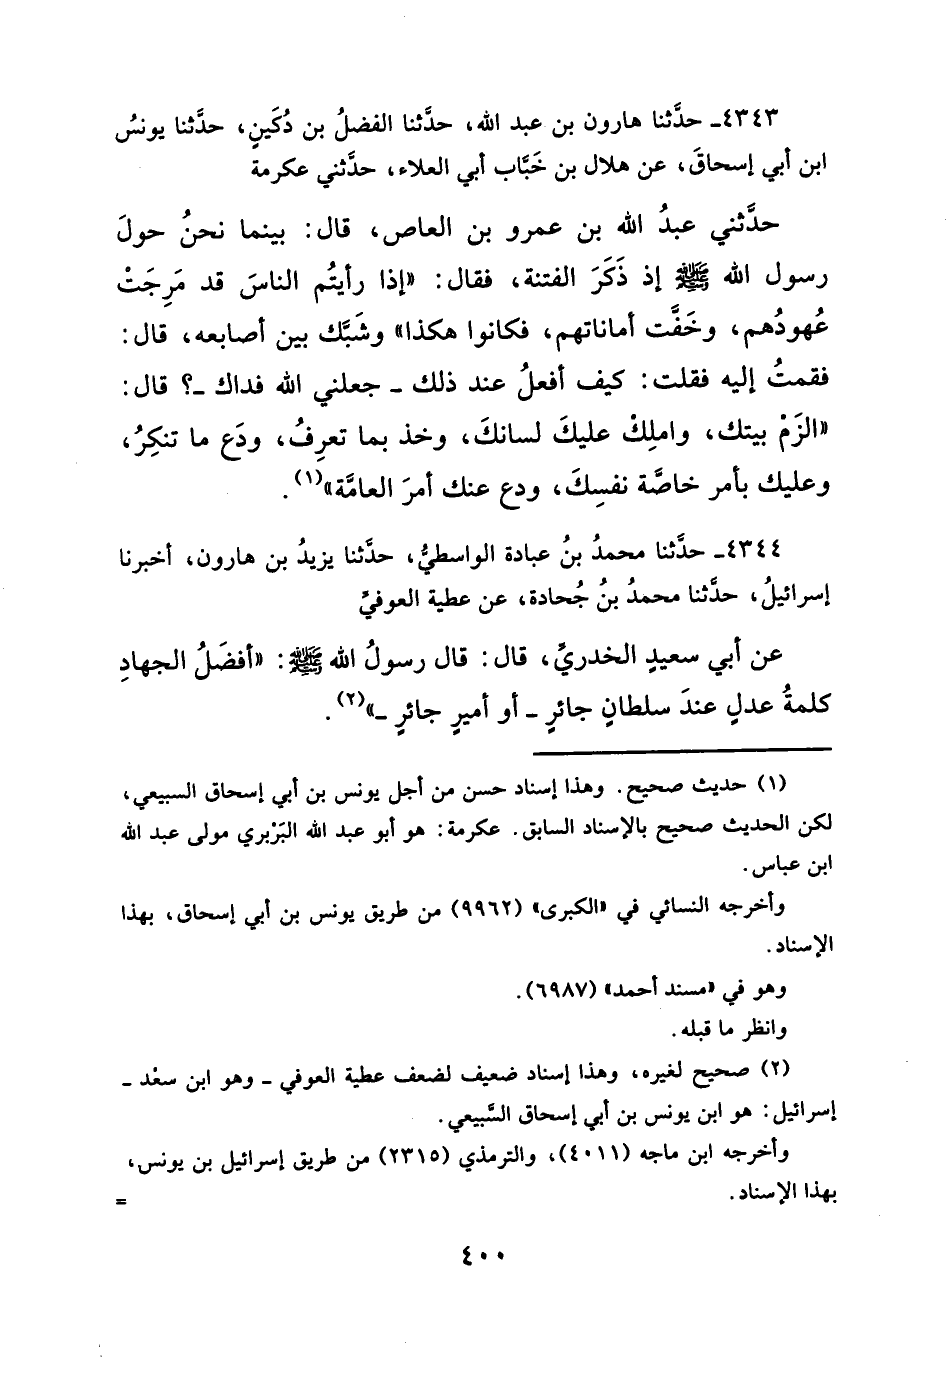 ٤٣٤٣ـ حدَّثنا هارون بن عبد الله، حدَّثنا الفضلُ بن دُكَينٍ، حدَّثنا يونسُ
ابن أبي إسحاقَ، عن هلال بن خَبَّاب أبي العلاء، حدَّثني عكرمة
حدَّثني عبدُ الله بن عمرو بن العاص، قال: بينما نحنُ حولَ
رسول الله ﷺ إذ ذَكَرَ الفتنة، فقال: «إذا رأيتُم الناسَ قد مَرِجَتْ
عُهودُهم، وخَفَّت أماناتهم، فكانوا هكذا» وشبَّك بين أصابعه، قال:
فقمتُ إليه فقلت: كيف أفعلُ عند ذلك ـ جعلني الله فداك ـ؟ قال:
«الزَمْ بيتك، واملِكْ عليكَ لسانكَ، وخذ بما تعرِفُ، ودَع ما تنكِرُ،
وعليك بأمر خاصَّة نفسِكَ، ودع عنك أمرَ العامَّة»(١).
٤٣٤٤ـ حدَّثنا محمدُ بنُ عبادة الواسطيُّ، حدَّثنا يزيدُ بن هارون، أخبرنا
إسرائيلُ، حدَّثنا محمدُ بنُ جُحادة، عن عطية العوفيِّ
عن أبي سعيدٍ الخدريِّ، قال: قال رسولُ الله ﷺ: «أفضَلُ الجهادِ
كلمةُ عدلٍ عندَ سلطانٍ جائرٍ ـ أو أميرٍ جائرٍ ـ»(٢).
(١) حديث صحيح. وهذا إسناد حسن من أجل يونس بن أبي إسحاق السبيعي،
لكن الحديث صحيح بالإسناد السابق. عكرمة: هو أبو عبد الله البَرْبري مولى عبد الله
ابن عباس.
وأخرجه النسائي في «الكبرى» (٩٩٦٢) من طريق يونس بن أبي إسحاق، بهذا
الإسناد.
وهو في «مسند أحمد» (٦٩٨٧).
وانظر ما قبله.
(٢) صحيح لغيره، وهذا إسناد ضعيف لضعف عطية العوفي ـ وهو ابن سعْد ـ
إسرائيل: هو ابن يونس بن أبي إسحاق السَّبيعي.
وأخرجه ابن ماجه (٤٠١١)، والترمذي (٢٣١٥) من طريق إسرائيل بن يونس،
بهذا الإسناد. =
٤٠٠